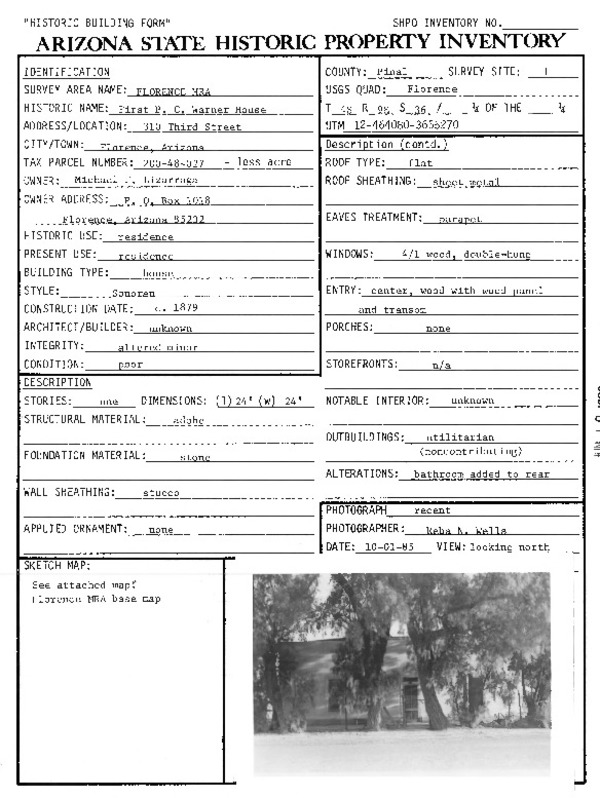 "HISTORIC BUILDING FORM"
SHPO INVENTORY NO.
ARIZONA STATE HISTORIC PROPERTY INVENTORY
IDENTIFICATION
SURVEY AREA NAME: FLORENCE MRA
HISTORIC NAME: First P. C. Warner House
ADDRESS/LOCATION: 310 Third Street
CITY/TOWN: Florence, Arizona
TAX PARCEL NUMBER: 200-48-027 - less acre
OWNER: Michael
OWNER ADDRESS: P. O. Box 1018
Florence, Arizona 85232
HISTORIC USE: residence
PRESENT USE: residence
BUILDING TYPE: house
STYLE: Sonoran
CONSTRUCTION DATE: c. 1879
ARCHITECT/BUILDER: unknown
INTEGRITY: altered minor
CONDITION: poor
DESCRIPTION
STORIES: one DIMENSIONS: (l) 24' (w) 24'
STRUCTURAL MATERIAL: adobe
FOUNDATION MATERIAL: stone
WALL SHEATHING: stucco
APPLIED ORNAMENT: none
COUNTY: Pinal SURVEY SITE: 1
USGS QUAD: Florence
T 4S R 9E S 36 / ¼ OF THE ¼
UTM 12-464080-3655270
Description (contd.)
ROOF TYPE: flat
ROOF SHEATHING: sheet metal
EAVES TREATMENT: parapet
WINDOWS: 4/1 wood, double-hung
ENTRY: center, wood with wood panel
and transom
PORCHES: none
STOREFRONTS: n/a
NOTABLE INTERIOR: unknown
OUTBUILDINGS: utilitarian
(noncontributing)
ALTERATIONS: bathroom added to rear
PHOTOGRAPH recent
PHOTOGRAPHER: Reba N. Wells
DATE: 10-01-85 VIEW: looking north
SKETCH MAP:
See attached map:
Florence MRA base map